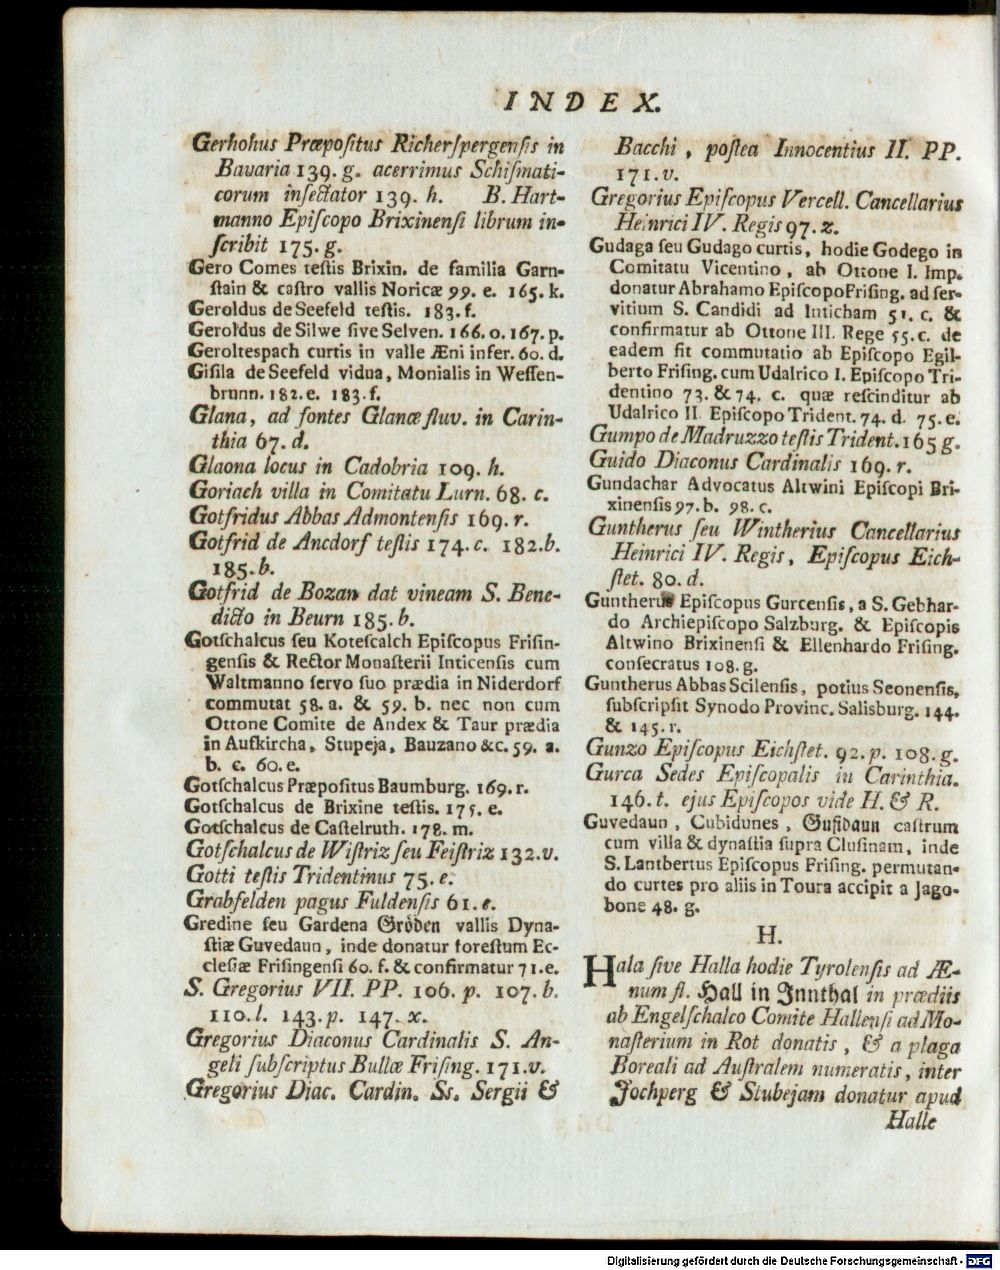 INDEX.
Gerhohus Præpoſitus Richerſpergenſis in
Bavaria 139. g. acerrimus Schiſmati-
corum inſectator 139. h. B. Hart-
manno Epiſcopo Brixinenſi librum in-
ſcribit 175. g.
Gero Comes teſtis Brixin. de familia Garn-
ſtain & caſtro vallis Noricæ 99. e. 165. k.
Geroldus de Seefeld teſtis. 183. f.
Geroldus de Silwe ſive Selven. 166. o. 167. p.
Geroltespach curtis in valle Æni infer. 60. d.
Giſila de Seefeld vidua, Monialis in Weſſen-
brunn. 182. e. 183. f.
Glana, ad fontes Glanæ fluv. in Carin-
thia 67. d.
Glaona locus in Cadobria 109. h.
Goriach villa in Comitatu Lurn. 68. c.
Gotfridus Abbas Admontenſis 169. r.
Gotfrid de Ancdorf teſtis 174. c. 182. b.
185. b.
Gotfrid de Bozan dat vineam S. Bene-
dicto in Beurn 185. b.
Gotſchalcus ſeu Koteſcalch Epiſcopus Friſin-
genſis & Rector Monaſterii Inticenſis cum
Waltmanno ſervo ſuo prædia in Niderdorf
commutat 58. a. & 59. b. nec non cum
Ottone Comite de Andex & Taur prædia
in Aufkircha, Stupeja, Bauzano &c. 59. a.
b. c. 60. e.
Gotſchalcus Præpoſitus Baumburg. 169. r.
Gotſchalcus de Brixine teſtis. 175. e.
Gotſchalcus de Caſtelruth. 178. m.
Gotſchalcus de Wiſtriz ſeu Feiſtriz 132. v.
Gotti teſtis Tridentinus 75. e.
Grabfelden pagus Fuldenſis 61. e.
Gredine ſeu Gardena Gröden vallis Dyna-
ſtiæ Guvedaun, inde donatur foreſtum Ec-
cleſiæ Friſingenſi 60. f. & confirmatur 71. e.
S. Gregorius VII. PP. 106. p. 107. b.
110. l. 143. p. 147. x.
Gregorius Diaconus Cardinalis S. An-
geli ſubſcriptus Bullæ Friſing. 171. v.
Gregorius Diac. Cardin. Ss. Sergii &
Bacchi, poſtea Innocentius II. PP.
171. v.
Gregorius Epiſcopus Vercell. Cancellarius
Heinrici IV. Regis 97. z.
Gudaga ſeu Gudago curtis, hodie Godego in
Comitatu Vicentino, ab Ottone I. Imp.
donatur Abrahamo Epiſcopo Friſing. ad ſer-
vitium S. Candidi ad Inticham 51. c. &
confirmatur ab Ottone III. Rege 55. c. de
eadem fit commutatio ab Epiſcopo Egil-
berto Friſing. cum Udalrico I. Epiſcopo Tri-
dentino 73. & 74. c. quæ reſcinditur ab
Udalrico II. Epiſcopo Trident. 74. d. 75. e.
Gumpo de Madruzzo teſtis Trident. 165 g.
Guido Diaconus Cardinalis 169. r.
Gundachar Advocatus Altwini Epiſcopi Bri-
xinenſis 97. b. 98. c.
Guntherus ſeu Wintherius Cancellarius
Heinrici IV. Regis, Epiſcopus Eich-
ſtet. 80. d.
Guntherus Epiſcopus Gurcenſis, a S. Gebhar-
do Archiepiſcopo Salzburg. & Epiſcopis
Altwino Brixinenſi & Ellenhardo Friſing.
conſecratus 108. g.
Guntherus Abbas Scilenſis, potius Seonenſis,
ſubſcripſit Synodo Provinc. Salisburg. 144.
& 145. r.
Gunzo Epiſcopus Eichſtet. 92. p. 108. g.
Gurca Sedes Epiſcopalis in Carinthia.
146. t. ejus Epiſcopos vide H. & R.
Guvedaun, Cubidunes, Gufidaun caſtrum
cum villa & dynaſtia ſupra Cluſinam, inde
S. Lantbertus Epiſcopus Friſing. permutan-
do curtes pro aliis in Toura accipit a Jago-
bone 48. g.
H.
Hala ſive Halla hodie Tyrolenſis ad Æ-
num fl. Hall in Innthal in prædiis
ab Engelſchalco Comite Hallenſi ad Mo-
naſterium in Rot donatis, & a plaga
Boreali ad Auſtralem numeratis, inter
Jochperg & Stubejam donatur apud
Halle
Digitalisierung gefördert durch die Deutsche Forschungsgemeinschaft - DFG